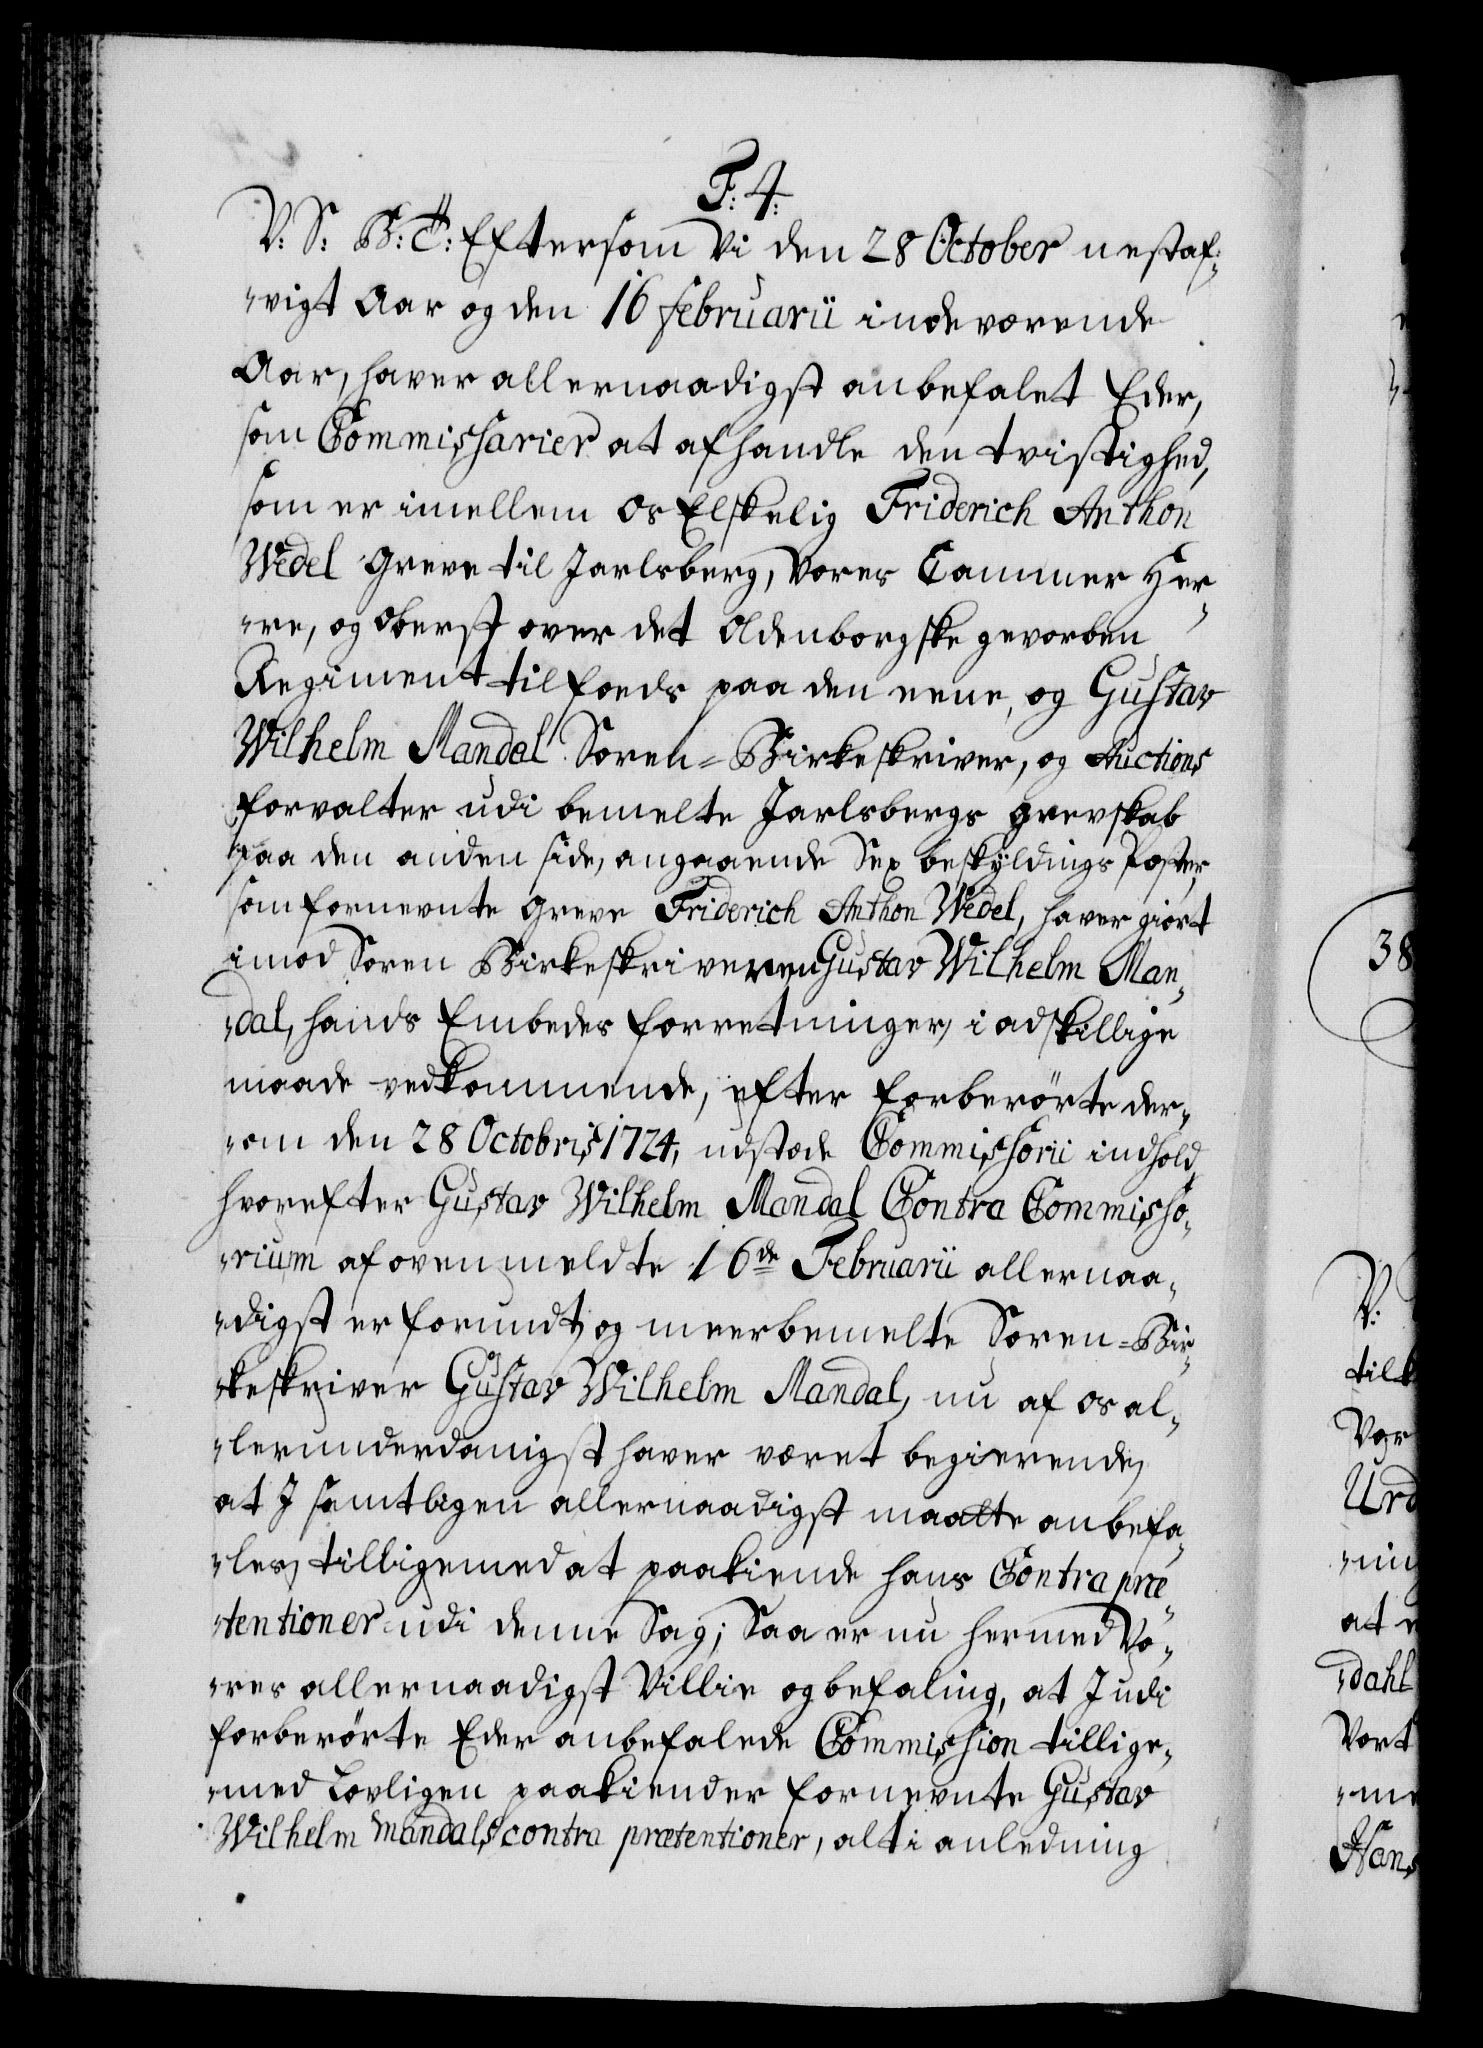 F. 4.
V: S: B: T: Eftersom Vi den 28 October nestaf-
vigt Aar og den 16 februarii indeværende
Aar, haver allernaadigst anbefalet Eder,
som Commissarier at afhandle den tvistighed,
som er imellem os Elskelig Friderich Anthon
Wedel Greve til Jarlsberg, Vores Cammer Her-
re, og Oberst over det Oldenborgske gevorben
Regiment til foeds paa den eene, og Gustav
Wilhelm Mandal Soren=Birkeskriver, og Auctions
forvalter udi bemelte Jarlsbergs grevskab
paa den anden side, angaaende Sex beskyldings Poster,
som fornevnte Greve Friderich Anthon Wedel, haver giort
imod Soren Birkeskriveren Gustav Wilhelm Man-
dal, hands Embedes forretninger, i adskillige
maade vedkommende, efter forberørte der-
om den 28 Octobris 1724, udstæde Commissorii indhold,
hvorefter Gustav Wilhelm Mandal Contra Commisso-
rium af ovenmeldte 16de Februarii allernaa-
digst er forundt, og meerbemelte Soren=Bir-
keskriver Gustav Wilhelm Mandal, nu af os al-
lerunderdanigst haver været begierende,
at I samtligen allernaadigst maatte anbefa-
les, tilligemed at paakiende hans Contra præ-
tentioner udi denne Sag; Saa er nu hermed Vo-
res allernaadigst Villie og befaling, at I udi
forberørte Eder anbefalede Commission tillige-
med Lovligen paakiender fornevnte Gustav
Wilhelm Mandals contra prætentioner, alt i anledning
38
V:
til
Vor
Urd
at
dahl
Vort
Hans